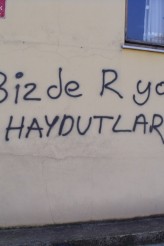 Bizde R yo
HAYDUTLAR